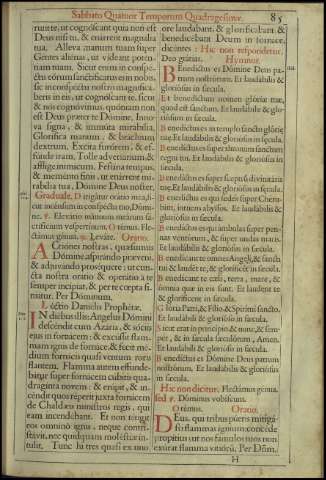 Sabbato Quatuor Temporum Quadragesimæ. 85
runt te, ut cognoscant quia non est
Deus nisi tu, & enarrent magnalia
tua. Alleva manum tuam super
Gentes alienas, ut videant potén-
tiam tuam. Sicut enim in conspé-
ctu eórum sanctificatus es in nobis,
sic in conspectu nostro magnifica-
beris in eis, ut cognoscant te, sicut
& nos cognovimus, quóniam non
est Deus præter te Domine. Inno-
va signa, & immuta mirabilia.
Glorifica manum, & brachium
dextrum. Excita furórem, & ef-
funde iram. Tolle adversarium, &
afflige inimicum. Festina tempus,
& memento finis, ut enarrent mi-
rabilia tua, Dómine Deus noster.
Graduale. Dirigatur oratio mea, si-
cut incénsum in conspéctu tuo, Dómi-
ne. ℣. Elevátio mánuum meárum sa-
crifícium vespertínum. Orémus. Fle-
ctámus génua. ℟. Leváte. Oratio.
Actiónes nostras, quæsumus
Dómine, aspirándo præveni,
& adjuvando proséquere: ut cun-
cta nostra oratio & operatio à te
semper incipiat, & per te cœpta fi-
niatur. Per Dóminum.
Lectio Daniélis Prophétæ.
IN diébus illis: Angelus Dómini
descéndit cum Azária, & sóciis
ejus in fornácem: & excússit flam-
mam ignis de fornáce, & fecit mé-
dium fornácis quasi ventum roris
flantem. Flamma autem effunde-
bátur super fornácem cúbitis qua-
dragínta novem: & erúpit, & in-
céndit quos réperit juxta fornácem
de Chaldæis minístros regis, qui
eam incendébant. Et non tétigit
eos omníno ignis, neque contri-
stávit, nec quidquam moléstiæ in-
tulit. Tunc hi tres quasi ex uno
ore laudabant, & glorificabant &
benedicebant Deum in fornace,
dicéntes: Hic non respondetur,
Deo grátias. Hymnus.
Benedíctus es Dómine Deus pa-
trum nostrórum. Et laudábilis &
gloriósus in sæcula.
Et benedíctum nomen glóriæ tuæ,
quod est sanctum. Et laudábile &
gloriósum in sæcula.
Benedíctus es in templo sancto glóriæ
tuæ. Et laudábilis & gloriósus in sæcula.
Benedíctus es super thronum sanctum
regni tui. Et laudábilis & gloriósus in
sæcula.
Benedíctus es super sceptrum divinitátis
tuæ. Et laudábilis & gloriósus in sæcula.
Benedíctus es qui sedes super Chéru-
bim, íntuens abýssos. Et laudábilis &
gloriósus in sæcula.
Benedíctus es qui ámbulas super pen-
nas ventórum, & super undas maris.
Et laudábilis & gloriósus in sæcula.
Benedícant te omnes Angeli, & Sancti
tui. & laudent te, & gloríficent in sæcula.
Benedícant te cæli, terra, mare, &
ómnia quæ in eis sunt. Et laudent te
& gloríficent in sæcula.
Glória Patri, & Fílio, & Spirítui sancto.
Et laudábili & glorióso in sæcula.
Sicut erat in princípio & nunc, & sem-
per, & in sæcula sæculórum, Amen.
Et laudábili & glorióso in sæcula.
Benedíctus es Dómine Deus patrum
nostrórum. Et laudábilis & gloriósus
in sæcula.
Hic non dicitur, Flectámus génua.
sed ℣. Dóminus vobíscum.
Orémus. Oratio.
Deus, qui tribus púeris mitigá-
sti flammas ígnium: concéde
propítius; ut nos fámulos tuos non
exúrat flamma vitiórum. Per Dñm.
H